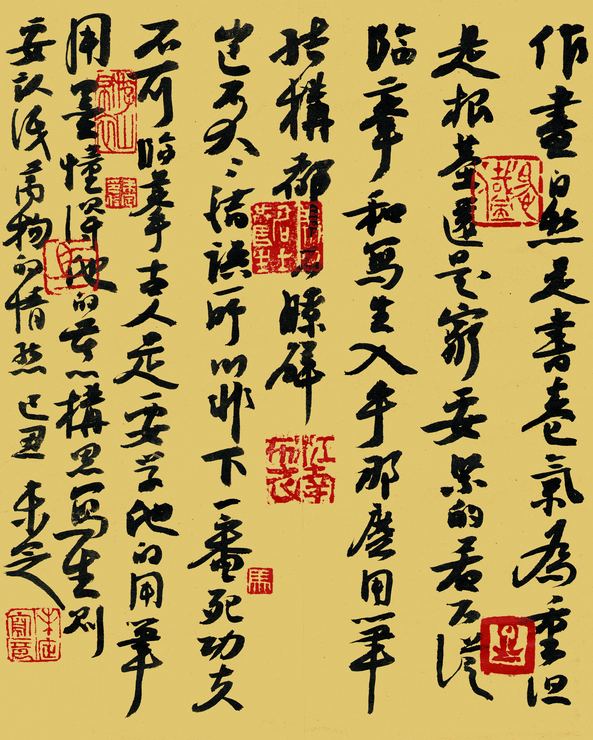 作畫自然是書卷氣為重但
是根基還是窮要緊的若不從
臨摹和寫生入手那麼用筆
結構都暸解
江南布衣
豈不大〻誤所以非下一番死功夫
不可臨摹古人是要学他的用筆
用墨憧得他的構思寫生則
要认識萬物的情態己丑